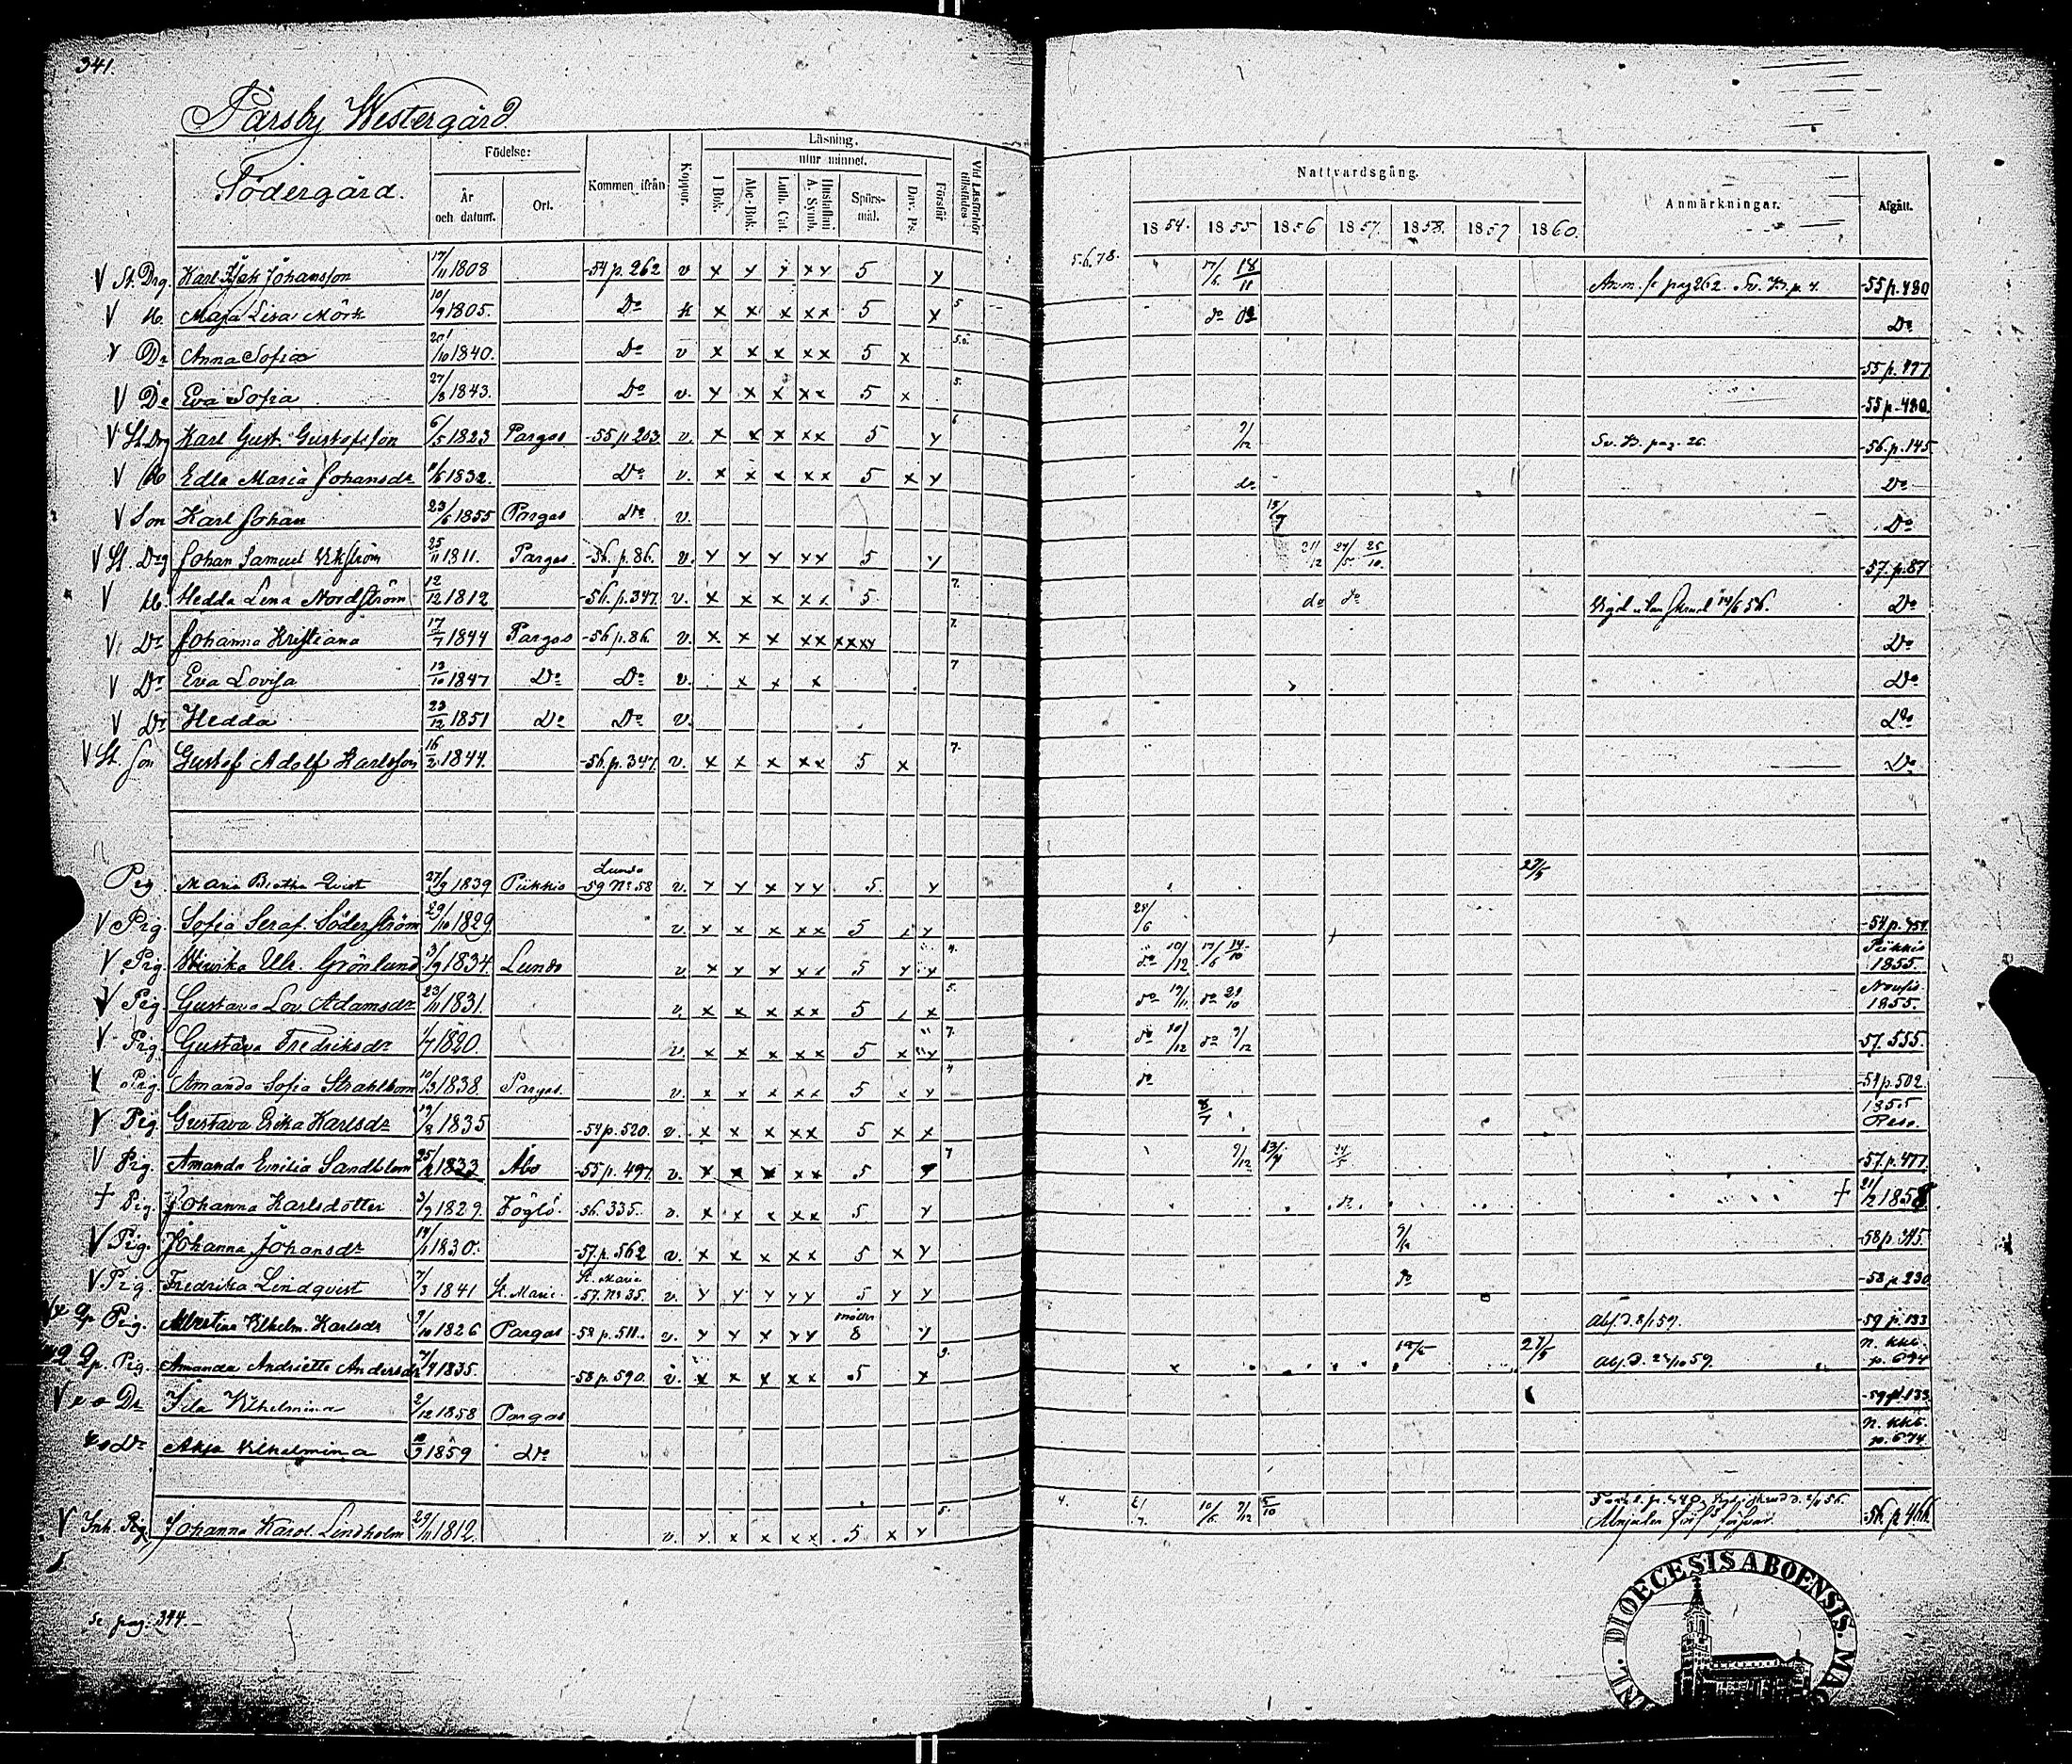 341.
Pärsby Westergård
Södergård.
Födelse:
År och datum.
Ort.
Kommen ifrån
Koppor.
Läsning.
utur minnet.
I Bok.
Abc-Bok.
Luth. Cat.
Hustaflan A. Symb.
Spörsmål.
Dav. Ps.
Förstår
Vid Läsförhör tillstädes
Nattvardsgång.
1854. 1855 1856 1857. 1858. 1859 1860.
Anmärkningar.
Afgått.
5.6.78.
V St. Drg. Karl Isak Johansson 17/11 1808 -54 p. 262 v x x x xx 5 x 17/6 18/11 Anm. se pag 262. Sv. B. p. 4. -55 p. 480
V H. Maja Lisa Mörk 10/9 1805. Do x x x xx 5 x 5 do Do
V Dr Anna Sofia 20/10 1840. Do v x x x xx 5 x -55 p. 477
V Dr Eva Sofia 27/8 1843. Do v. x x x xx 5 x 5. -55 p. 480.
V St. Drg Karl Gust. Gustafsson 6/5 1823 Pargas -55 p 203 v. x x x xx 5 x 6 9/12 Sv. B. pag. 26. -56. p. 145
V H. Edla Maria Johansdr 1832. Do v. x x x xx 5 x x do Do
V Son Karl Johan 23/6 1855 Pargas Do v. 13/7 Do
V St. Drg Johan Samuel Ekström 25/11 1811. Pargas -56. p. 86. v. x x x xx 5 x 21/12 24/5 25/10 -57. p. 87
V H. Hedda Lena Nordström 12/12 1812 -56. p. 347. v. x x x xx 5 7. do do Vigd utan 14/6 56. Do
V Dr Johanna Kristiana 17/7 1844 Pargas -56 p. 86. v. x x x xx xxxx 7. Do
V Dr Eva Lovisa 13/10 1847 Do Do v. x x x 7 Do
V Dr Hedda 23/12 1851 Do Do v. Do
V St. son Gustaf Adolf Karlsson 16/2 1844. -56. p. 347. v. x x x xx 5 x 7. Do
Pig. Maria Beatha Qvist 27/9 1839 Piikkis Lundo -59 No 58 v. x x x xx 5. x 27/5
V Pig. Sofia Seraf. Söderström 29/10 1829 v. x x x xx 5 x x 24/6 -54 p. 454.
V Pig. Ulrika Ulr. Grönlund 3/9 1834. Lundo v x x x xx 5 x x 4. do 10/12 17/6 14/10 Piikkis 1855.
V Pig. Gustava Lov. Adamsdr 23/11 1831. v. x x x xx 5 x x 5. do 19/11 do 29/10 Nousis 1855.
V Pig. Gustava Fredriksdr 1/7 1820. v. x x x xx 5 x x 7. do 10/12 do 9/12 -57. 555.
V Pig. Amanda Sofia Strahlbom 10/3 1838. Pargas. v. x x x xx 5 x x 4 do -54 p. 502.
V Pig. Gustava Erika Karlsdr 19/8 1835 -54 p. 520. v. x x x xx 5 x x 8/7 1855 Reso.
V Pig. Amanda Emilia Sandblom 25/12 1833 Åbo -55 p. 497. v. x x x xx 5 x 7 9/12 13/7 24/5 -57. p. 477
† Pig. Johanna Karlsdotter 3/9 1829. Föglö. -56. 335. v. x x x xx 5 x do † 21/12 1858
V Pig. Johanna Johansdr 14/1 1830. -57. p. 562 v. x x x xx 5 x x -58 p. 345.
V Pig. Fredrika Lindqvist 7/3 1841 St. Marie. St. Marie -57. No 35. v. x x x xx 5 x x do -58 p. 230
Pig. Albertina Vilhelm. Karlsdr 9/10 1826 Pargas -58 p. 511. v. x x x xx 8 x Absf. d. 8/1 59. -59 p. 133
Pig. Amanda Andriette Andersdr 7/9 1835. -58 p. 590. v. x x x xx 5 x 9. 27/5 Absf. d. 59. n. kkb. p. 674
V Dr Ida Vilhelmina 2/12 1858 Pargas -59 p. 133
Dr Vilhelmina 1859 Do n. kkb. p. 674
V Inh. Pig. Johanna Karol. Lindholm 29/11 1812. v x x x xx 5 x x 5. 4. 10/6 9/12 5/10 -56. p 466
se pag. 344.
DIOECESIS ABOENSIS.